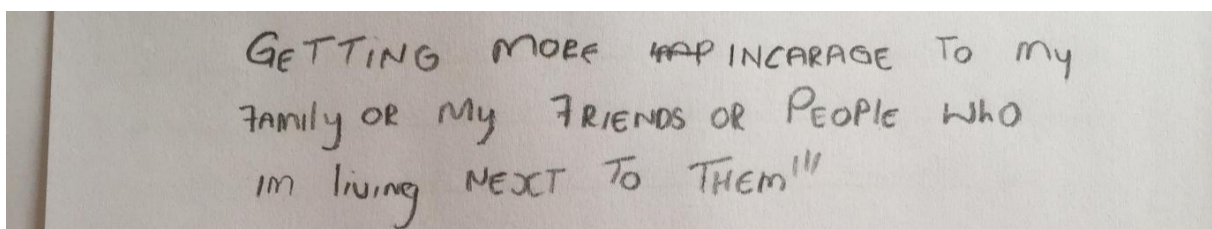 GETTING MORE INCARAGE TO My
FAMIly OR My FRIENDS OR PEOPlE WhO
IM living NEXT TO THEM!!!